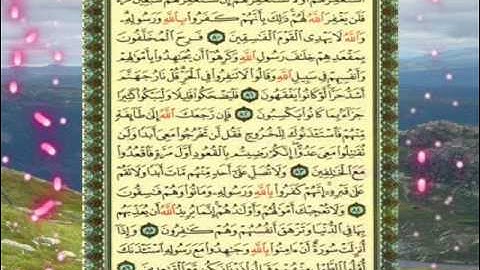 فَلَن يَغْفِرَ اللَّهُ لَهُمْ ذَٰلِكَ بِأَنَّهُمْ كَفَرُوا بِاللَّهِ وَرَسُولِهِ
وَاللَّهُ لَا يَهْدِي الْقَوْمَ الْفَاسِقِينَ ٨٠ فَرِحَ الْمُخَلَّفُونَ
بِمَقْعَدِهِمْ خِلَافَ رَسُولِ اللَّهِ وَكَرِهُوا أَن يُجَاهِدُوا بِأَمْوَالِهِمْ
وَأَنفُسِهِمْ فِي سَبِيلِ اللَّهِ وَقَالُوا لَا تَنفِرُوا فِي الْحَرِّ قُلْ نَارُ جَهَنَّمَ
أَشَدُّ حَرًّا لَّوْ كَانُوا يَفْقَهُونَ ٨١ فَلْيَضْحَكُوا قَلِيلًا وَلْيَبْكُوا كَثِيرًا
جَزَاءً بِمَا كَانُوا يَكْسِبُونَ ٨٢ فَإِن رَّجَعَكَ اللَّهُ إِلَىٰ طَائِفَةٍ
مِّنْهُمْ فَاسْتَأْذَنُوكَ لِلْخُرُوجِ فَقُل لَّن تَخْرُجُوا مَعِيَ أَبَدًا وَلَن
تُقَاتِلُوا مَعِيَ عَدُوًّا إِنَّكُمْ رَضِيتُم بِالْقُعُودِ أَوَّلَ مَرَّةٍ فَاقْعُدُوا
مَعَ الْخَالِفِينَ ٨٣ وَلَا تُصَلِّ عَلَىٰ أَحَدٍ مِّنْهُم مَّاتَ أَبَدًا وَلَا تَقُمْ
عَلَىٰ قَبْرِهِ إِنَّهُمْ كَفَرُوا بِاللَّهِ وَرَسُولِهِ وَمَاتُوا وَهُمْ فَاسِقُونَ
٨٤ وَلَا تُعْجِبْكَ أَمْوَالُهُمْ وَأَوْلَادُهُمْ إِنَّمَا يُرِيدُ اللَّهُ أَن يُعَذِّبَهُم
بِهَا فِي الدُّنْيَا وَتَزْهَقَ أَنفُسُهُمْ وَهُمْ كَافِرُونَ ٨٥ وَإِذَا
أُنزِلَتْ سُورَةٌ أَنْ آمِنُوا بِاللَّهِ وَجَاهِدُوا مَعَ رَسُولِهِ اسْتَأْذَنَكَ
أُولُو الطَّوْلِ مِنْهُمْ وَقَالُوا ذَرْنَا نَكُن مَّعَ الْقَاعِدِينَ ٨٦